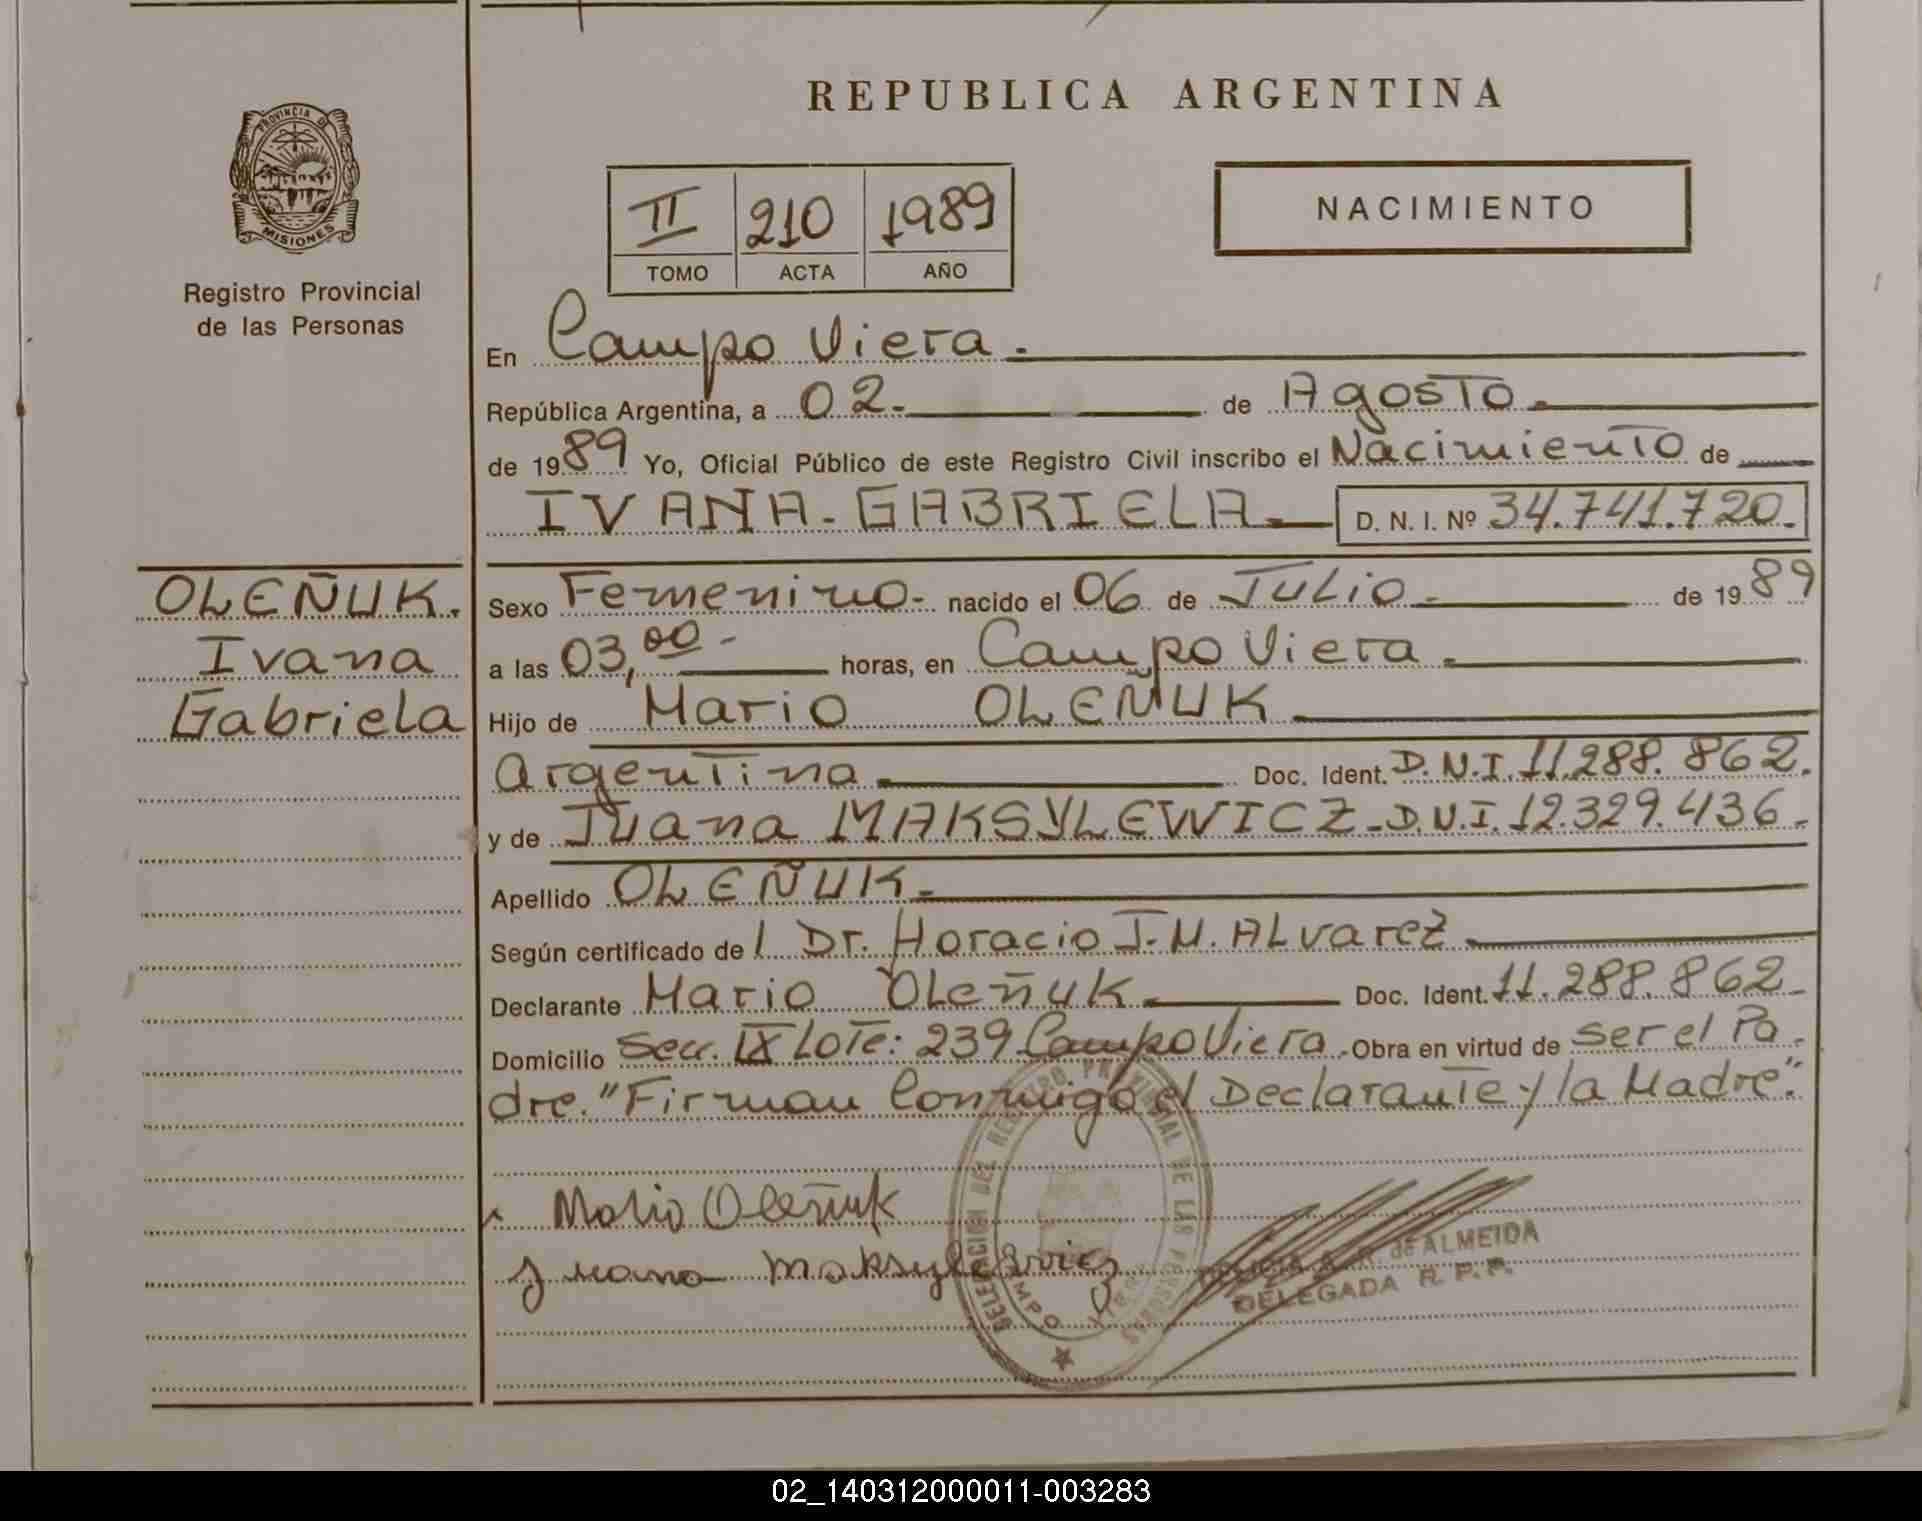 REPUBLICA ARGENTINA
PROVINCIA DE
MISIONES
Registro Provincial
de las Personas
II 210 1989
TOMO ACTA AÑO
NACIMIENTO
En Campo Viera.
República Argentina, a 02. de Agosto.
de 1989 Yo, Oficial Público de este Registro Civil inscribo el Nacimiento de
IVANA-GABRIELA D. N. I. Nº 34.741.720.
OLEÑUK.
Ivana
Gabriela
Sexo Femenino- nacido el 06 de Julio - de 1989
a las 03,00- horas, en Campo Viera
Hijo de Mario OLEÑUK
Argentina Doc. Ident. D.N.I. 11.288.862.
y de Juana MAKSYLEWICZ-D.N.I. 12.329.436-
Apellido OLEÑUK.
Según certificado de l Dr. Horacio J. M. ALvarez
Declarante Mario Oleñuk Doc. Ident. 11.288.862-
Domicilio Secc. IX Lote: 239 Campo Viera. Obra en virtud de ser el Pa-
dre. "Firman Conmigo el Declarante y la Madre".
Mario Oleñuk
Juana Maksylewicz
DELEGACION DEL REGISTRO PROVINCIAL DE LAS PERSONAS
CAMPO VIERA
de ALMEIDA
DELEGADA R. P. P.
02_140312000011-003283